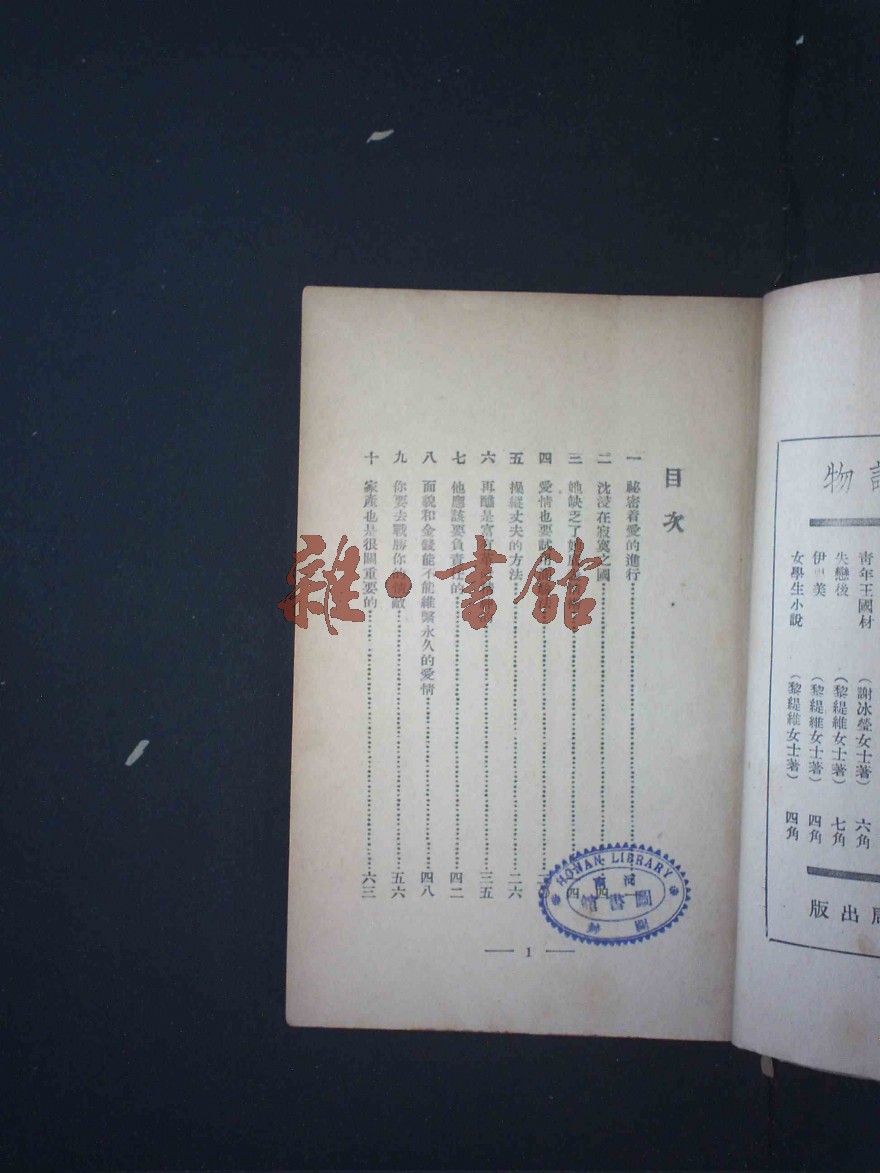 目次
一 祕密着愛的進行
二 沈浸在寂寞之國
三 她缺乏了 四
四 愛情也要試
五 操縱丈夫的方法 二六
六 再醮是 三五
七 他應該要負責任的 四二
八 面貌和金錢能不能維繫永久的愛情 四八
九 你要去戰勝你的情敵 五六
十 家產也是很關重要的 六三
1
HONAN LIBRARY
河南
圖書館
圖 封
雜·書館
物
青年王國材 (謝冰瑩女士著) 六角
失戀後 (黎緹維女士著) 七角
伊 美 (黎緹維女士著) 四角
女學生小說 (黎緹維女士著) 四角
局出版